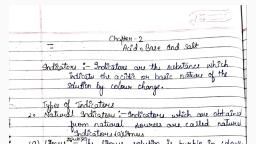 Chapter-2
Acid, Base and Salt
Indicators :- Indicators are the substance which
indicate the acidic or basic nature of the
solution by colour change.
Types of Indicators
Natural Indicators :- Indicators which are obtained
from natural sources are called natural
Indicators
Litmus solution is purple in colour